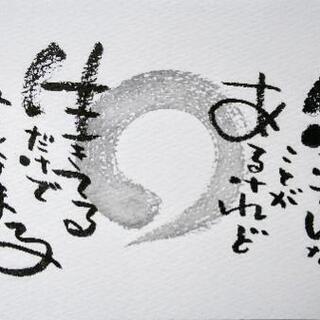 ことが
あるけれど
生きてる
だけで
まる